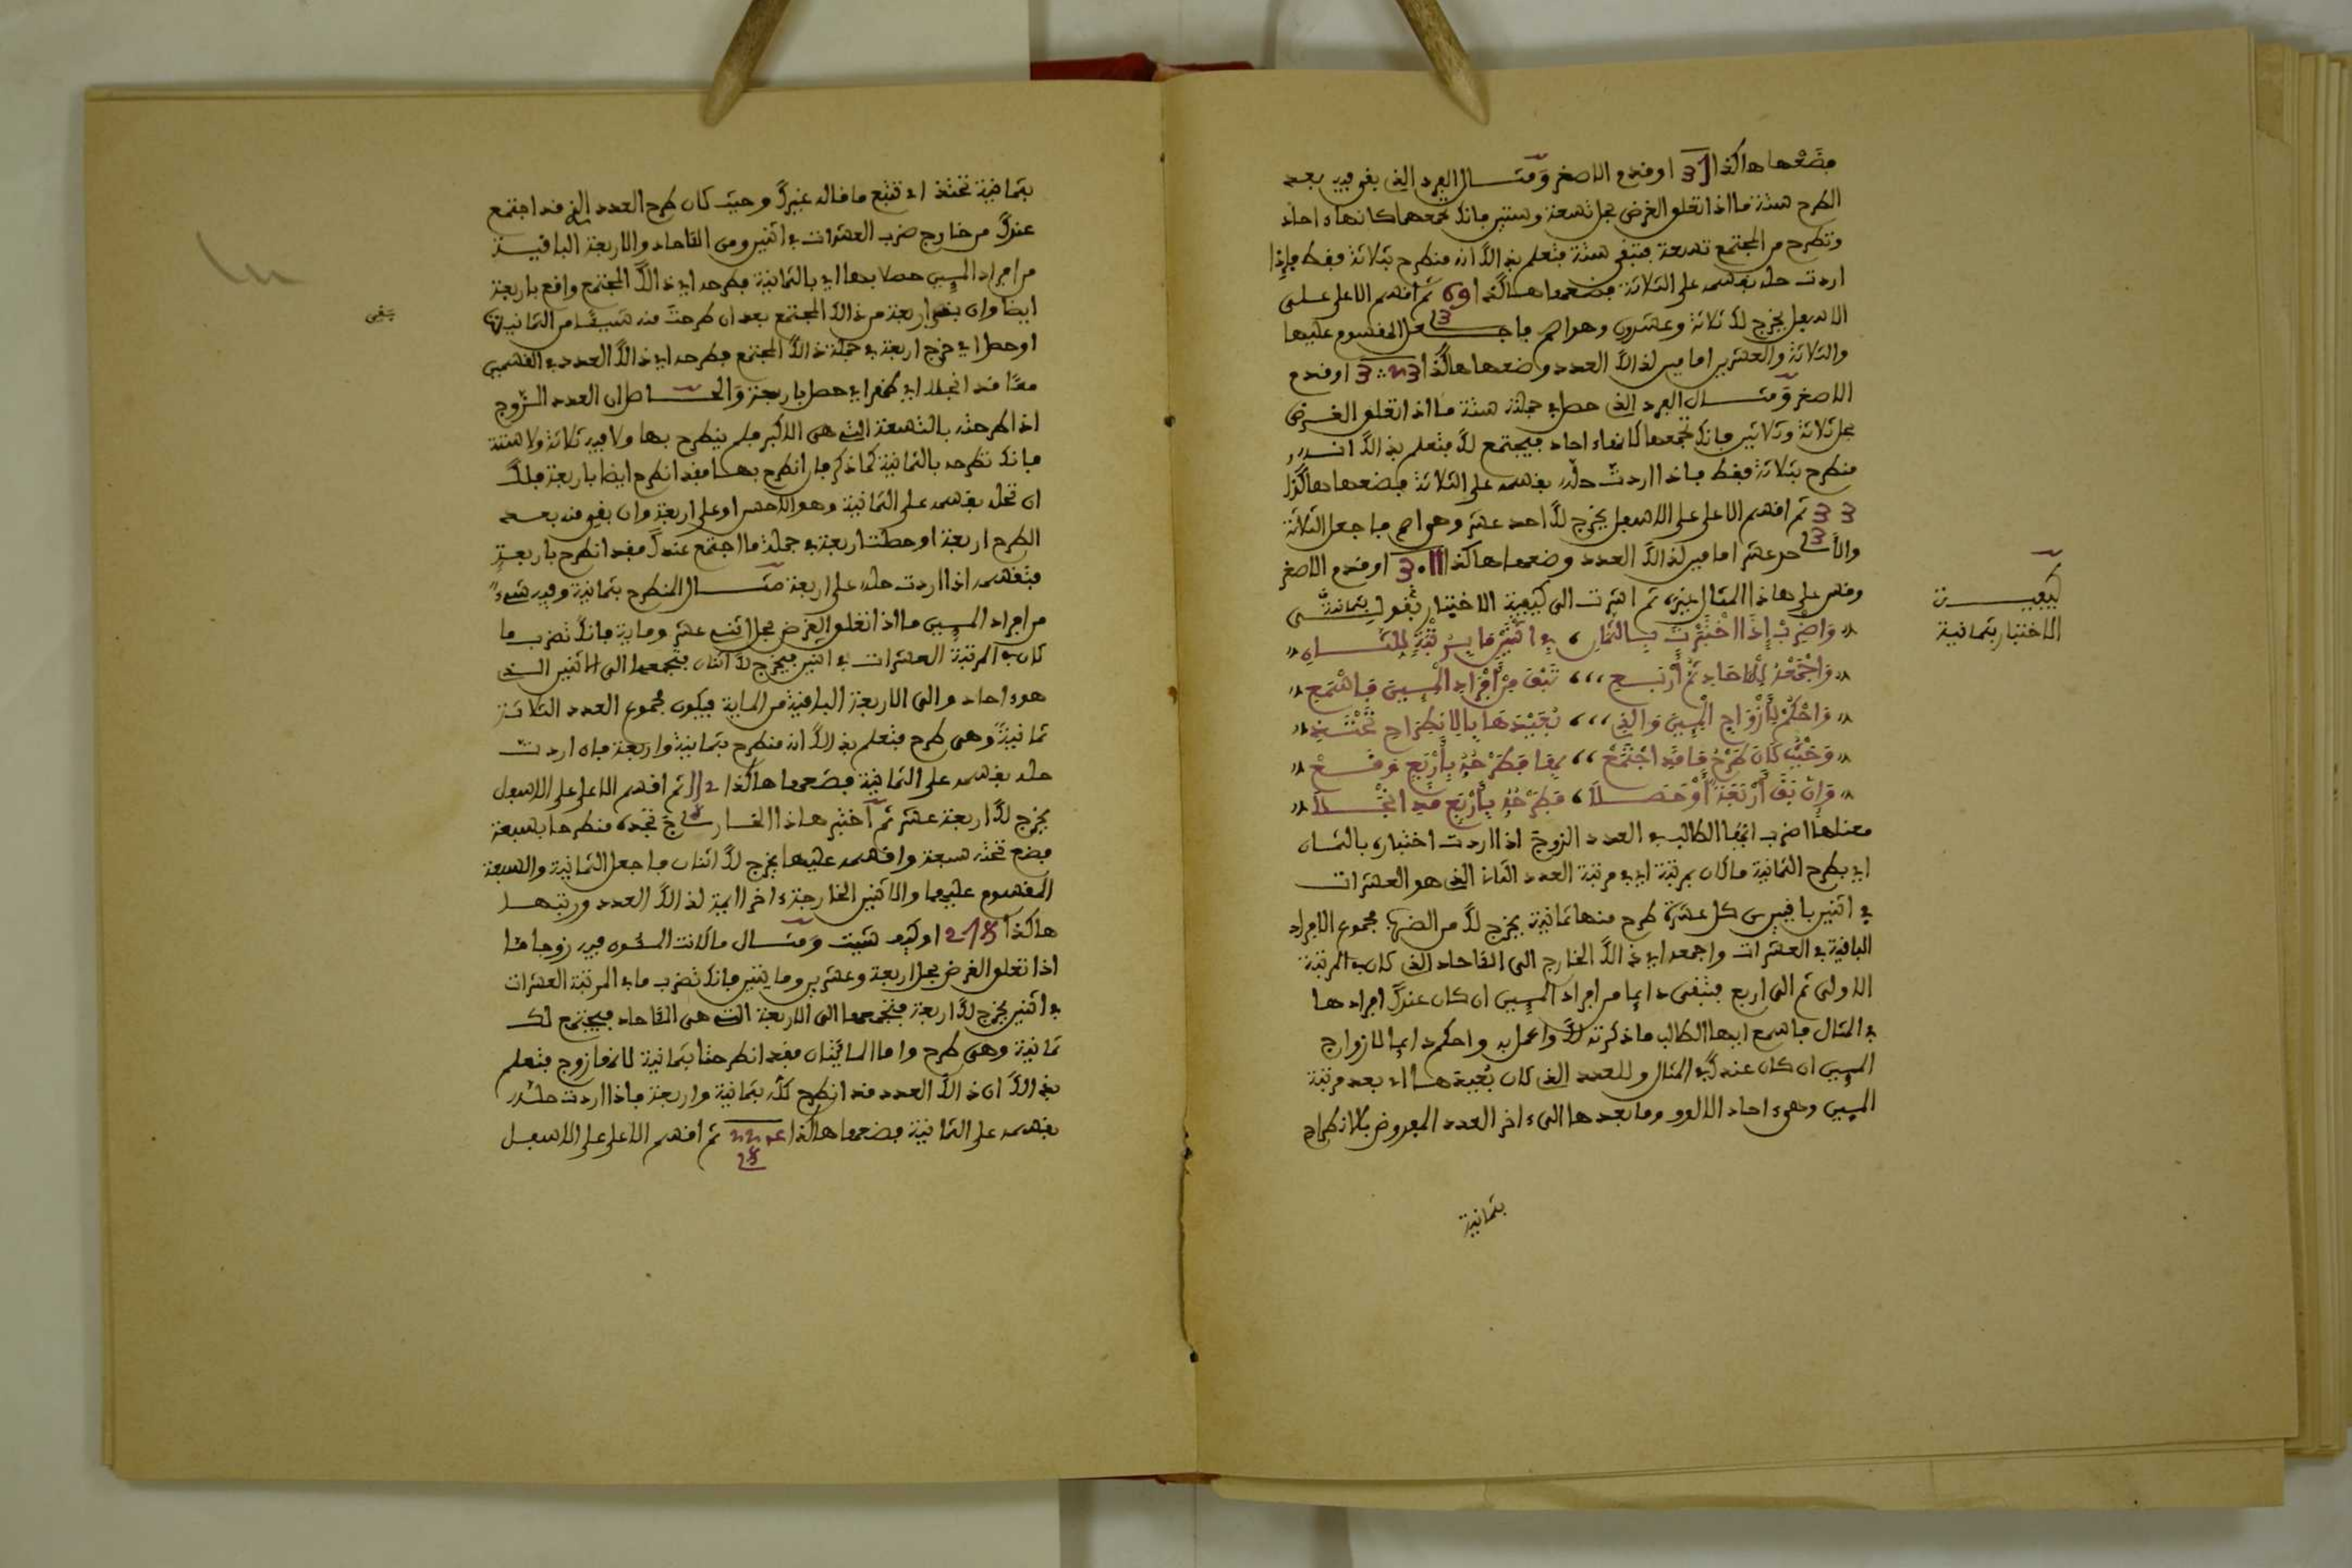 فضعها هاكذا 31 او قدم الاصغر ومثال الفرد الذي بقي فيه بعد
الطرح ستة ما اذا تعلق الغرض بحل تسعة وستين فانك تجمعها كانها ءاحاد
وتطرح من المجتمع تسعة فتبقى ستة فتعلم بذالك انه منطرح بثلاثة فقط فإذا
اردت حله بقسمه على الثلاثة فضعها هاكذا 69 ثم اقسم الاعلى على
3
الاسفل يخرج لك ثلاثة وعشرون وهو اصم فاجعل المقسوم عليها
والثلاثة والعشرين امامين لذالك العدد وضعها هاكذا 23 3 او قدم
الاصغر ومثال الفرد الذي حصل في جملته ستة ما اذا تعلق الغرض
بحل ثلاثة وثلاثين فانك تجمعها كانهاء احاد فيجتمع لك فتعلم بذالك انه
منطرح بثلاثة فقط فاذا اردت حله بقسمه على الثلاثة فضعها هاكذا
33 ثم اقسم الاعلى على الاسفل يخرج لك احد عشر وهو اصم فاجعل الثلاثة
3
والأحد عشر امامين لذالك العدد وضعها هاكذا 11 3 او قدم الاصغر
وقس على هاذا المثال غيره ثم اشرت الى كيفية الاختبار بقولي بثمانية
كيفية
الاختبار بثمانية
واضرب إذا اختبرت بالثمان ، في اثنين ما برتبة المثان
واجمعه للاحاد ثم أربع ،،، تبق من أفراد المين فاسمع
واحكم بأزواج المين والذي ،،، بعيدها بالانطراح تحتذي
وحيث كان طرح ما قد اجتمع ،، بها فطرحه بأربع وقع
وإن بقى أربعة أو حصلا ، فطرحه بأربع قد انجلا
معناها اضرب ايها الطالب في العدد الزوج اذا اردت اختباره بالثمان
اي بطرح الثمانية ما كان برتبة اي في مرتبة العدد الثاني الذي هو العشرات
في اثنين باقيين من كل عشرة طرح منها ثمانية يخرج لك من الضرب مجموع الافراد
الباقية في العشرات واجمعه اي ذالك الخارج الى الئاحاد الذي كان في المرتبة
الاولى ثم الى اربع فتبقى دايما من افراد المين ان كان عندك افرادها
في المثال فاسمع ايها الطالب ما ذكرته لك واعمل به واحكم دايما لازواج
المين ان كان عندك في المثال وللعدد الذي كان بعيدها اي بعد مرتبة
المين وهيء احاد الالوف وما بعدها الىء اخر العدد المعروض بالانطراح
بثمانية
بثمانية تحتذ اي تتبع ما قاله غيرك وحيث كان طرح العدد الذي قد اجتمع
عندك من خارج ضرب العشرات في اثنين ومن الئاحاد والاربعة الباقية
من افراد المين حصلا بها اي بالثمانية فطرحه اي ذالك المجتمع واقع باربعة
ايضا وان بقى اربعة من ذالك المجتمع بعد ان طرحت منه شيئا من الثمانية
يبقى
او حصل اي خرج اربعة في جملة ذالك المجتمع فطرحه اي ذالك العدد في القسمين
معًا قد انجلا اي ظهر اي حصل باربعة والحاصل ان العدد الزوج
اذا طرحته بالتسعة التي هي الاكبر فلم ينطرح بها ولا فيه ثلاثة ولا ستة
فانك تطرحه بالثمانية كما ذكر فان انطرح بها فقد انطرح ايضا باربعة فلك
ان تحله بقسمه على الثمانية وهو الاحسن او على اربعة وان بقي منه بعد
الطرح اربعة او حصلت اربعة في جملة ما اجتمع عندك فقد انطرح باربعة
فتقسمه اذا اردت حله على اربعة مثال المنطرح بثمانية وفيه شيء
من افراد المين ما اذا تعلق الغرض بحل اثني عشر وماية فانك تضرب ما
كان في المرتبة العشرات في اثنين فيخرج لك اثنان فتجمعها الى الاثنين الذي
هوء احاد والى الاربعة الباقية من الماية فيكون مجموع العدد الثلاثة
ثمانية وهي طرح فتعلم بذالك انه منطرح بثمانية واربعة فاذ اردت
حله بقسمه على الثمانية فضعها هاكذا 112 ثم اقسم الاعلى على الاسفل
8
يخرج لك اربعة عشر ثم اختبر هاذا الخارج تجده منطرحا بسبعة
فضع تحته سبعة واقسمه عليها يخرج لك اثنان فاجعل الثمانية والسبعة
المقسوم عليهما والاثنين الخارجةء اخرا ايمة لذالك العدد ورتبها
هاكذا 8 7 2 او كيف شيت ومثال ما كانت المئون فيه زوجا ما
اذا تعلق الغرض بحل اربعة وعشرين ومايتين فانك تضرب ما في المرتبة العشرات
في اثنين يخرج لك اربعة فتجمعها الى الاربعة التي هي الئاحاد فيجتمع لك
ثمانية وهي طرح واما المائتان فقد انطرحتا بثمانية لانها زوج فتعلم
بذالك ان ذالك العدد قد انطرح كله بثمانية واربعة فاذا اردت حله
بقسمه على الثمانية فضعها هاكذا 224 ثم اقسم الاعلى على الاسفل
28